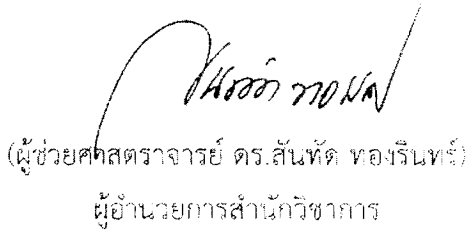 (ผู้ช่วยศาสตราจารย์ ดร.สันทัด ทองรินทร์)
ผู้อำนวยการสำนักวิชาการ